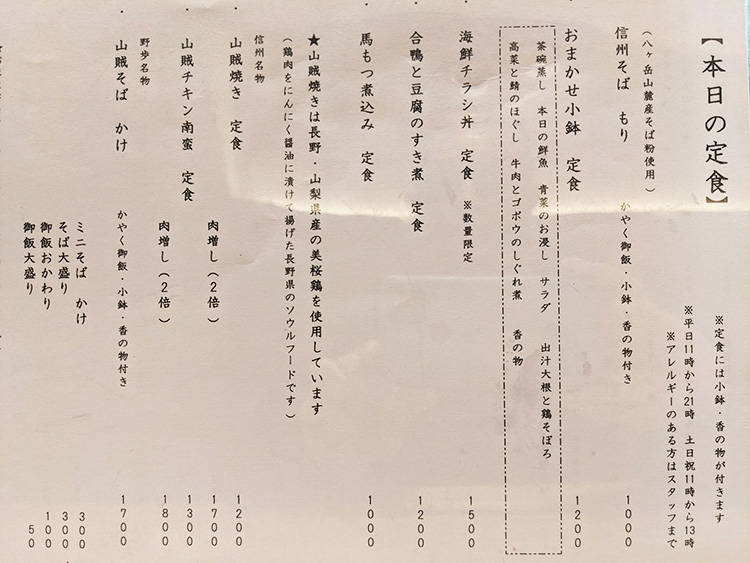 【本日の定食】
※定食には小鉢・香の物が付きます
※平日11時から21時 土日祝11時から13時
※アレルギーのある方はスタッフまで
(八ヶ岳山麓産そば粉使用)
信州そば もり かやく御飯・小鉢・香の物付き 1000
おまかせ小鉢 定食 1200
茶碗蒸し 本日の鮮魚 青菜のお浸し サラダ 出汁大根と鶏そぼろ
高菜と鯖のほぐし 牛肉とゴボウのしぐれ煮 香の物
海鮮チラシ丼 定食 ※数量限定 1500
合鴨と豆腐のすき煮 定食 1200
馬もつ煮込み 定食 1000
★山賊焼きは長野・山梨県産の美桜鶏を使用しています
(鶏肉をにんにく醤油に漬けて揚げた長野県のソウルフードです)
信州名物
・山賊焼き 定食 1200
肉増し(2倍) 1700
・山賊チキン南蛮 定食 1300
肉増し(2倍) 1800
野歩名物
・山賊そば かけ かやく御飯・小鉢・香の物付き 1700
ミニそば かけ 300
そば大盛り 300
御飯おかわり 100
御飯大盛り 50